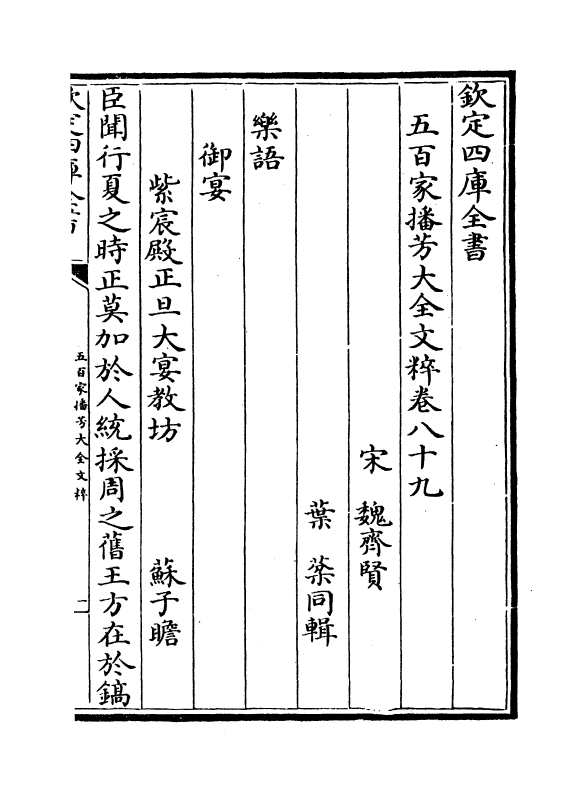 欽定四庫全書
五百家播芳大全文粹卷八十九
宋 魏齊賢
葉 棻同輯
樂語
御宴
紫宸殿正旦大宴教坊 蘇子瞻
臣聞行夏之時正莫加於人統採周之舊王方在於鎬
欽定四庫全書
五百家播芳大全文粹